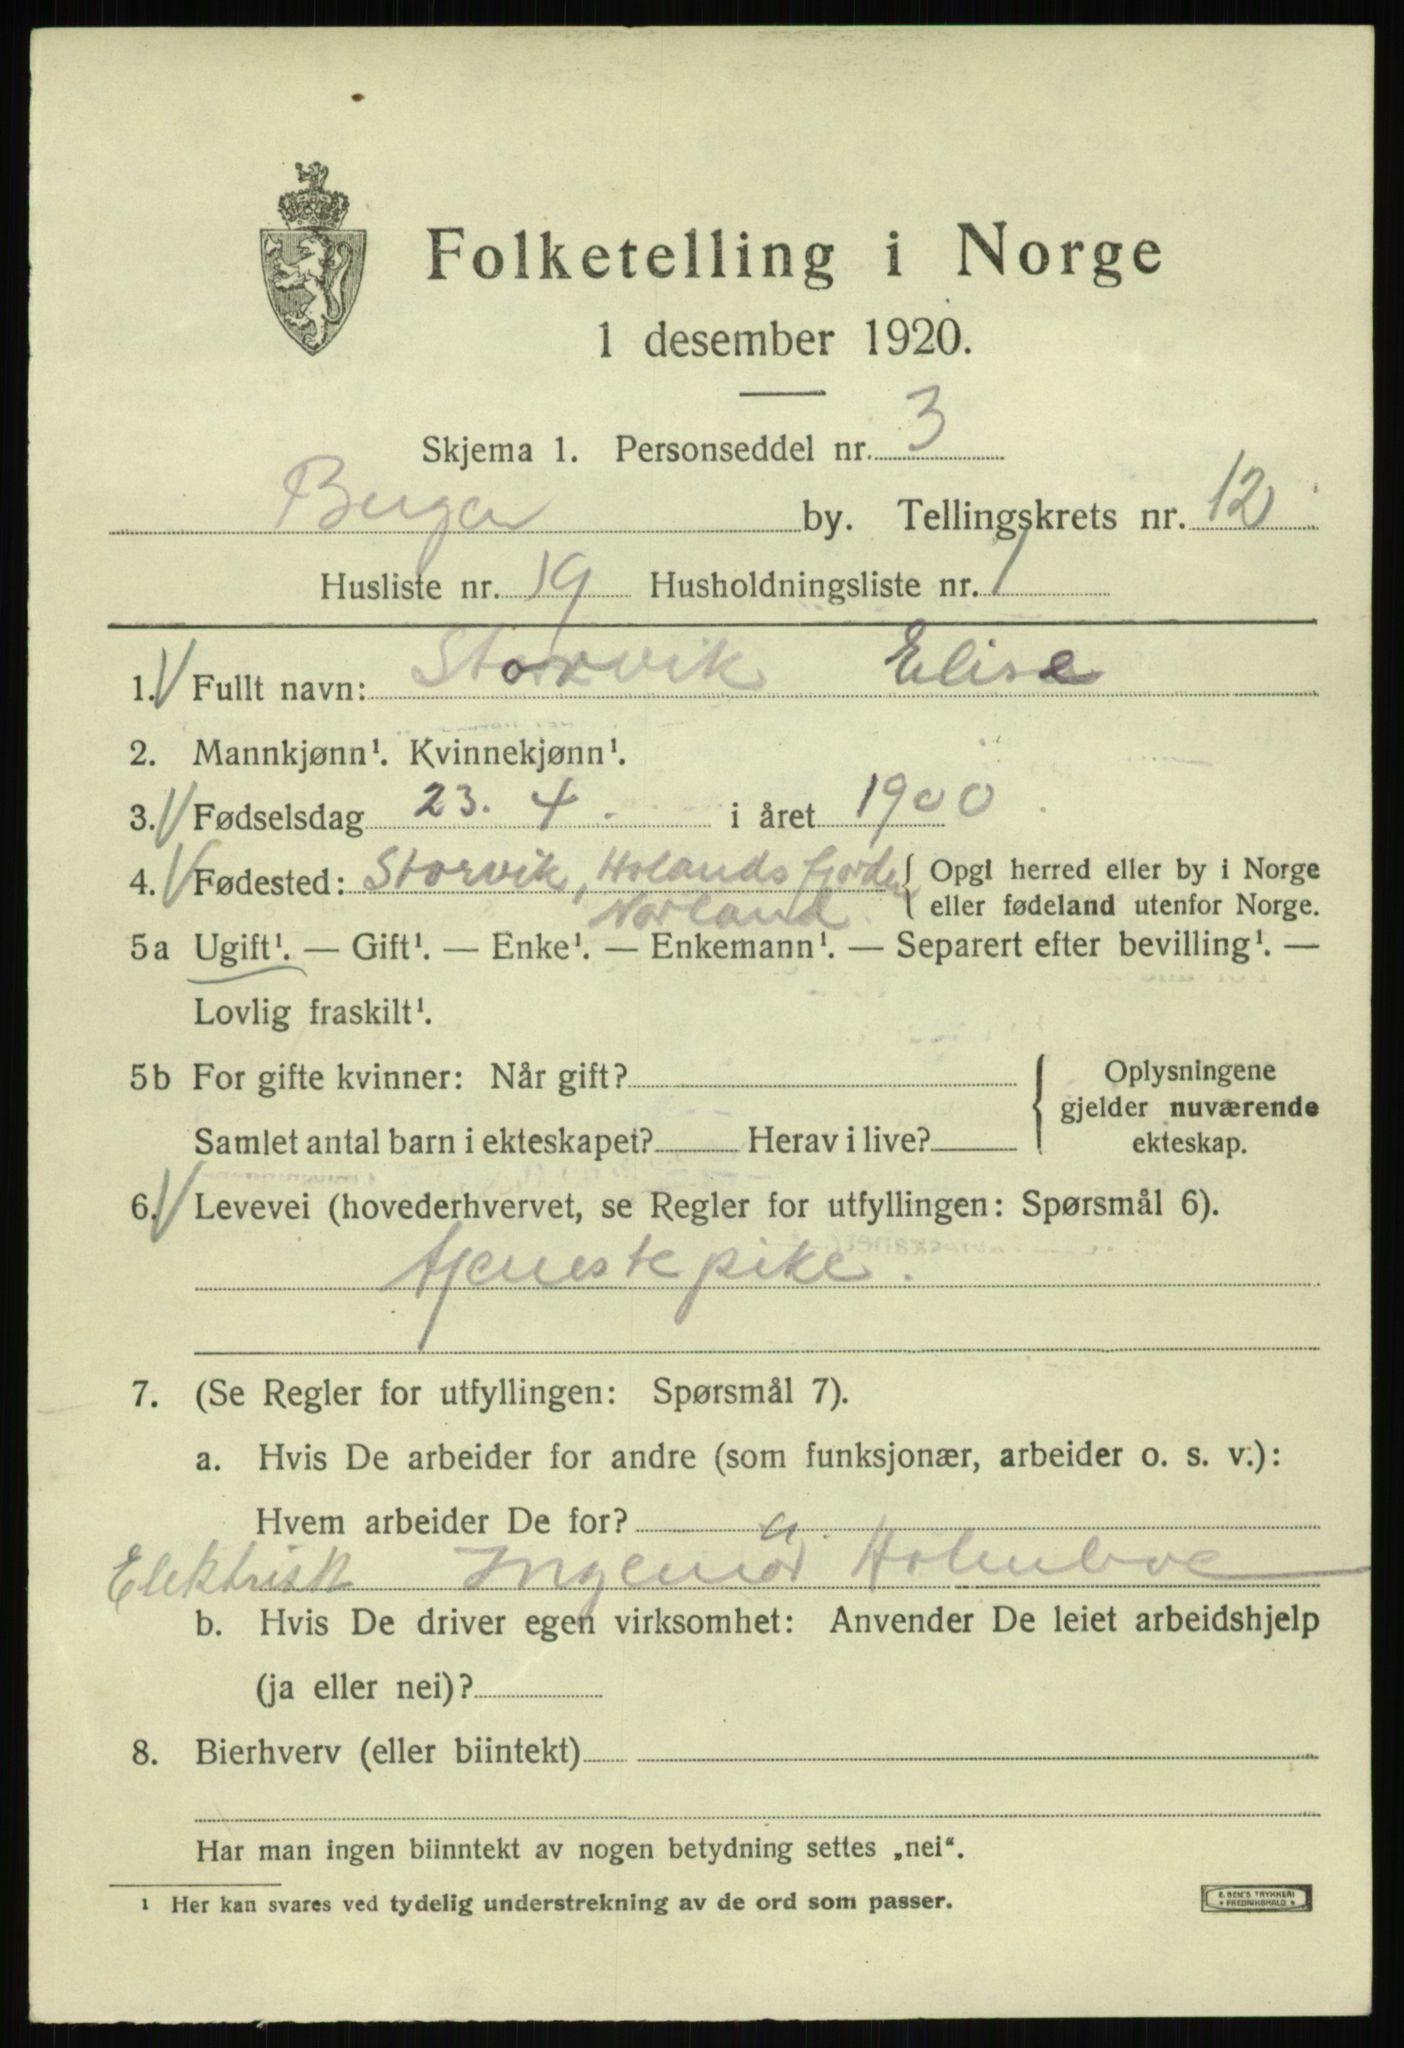 Folketelling i Norge
1 desember 1920.
Skjema 1. Personseddel nr. 3
Bergen by. Tellingskrets nr. 12
Husliste nr. 19 Husholdningsliste nr. 1
1. Fullt navn: Storvik Elise
2. Mannkjønn¹. Kvinnekjønn¹.
3. Fødselsdag 23. 4. i året 1900
4. Fødested: Storvik, Holandsfjorden { Opgi herred eller by i Norge
Norland. eller fødeland utenfor Norge.
5a Ugift¹. — Gift¹. — Enke¹. — Enkemann¹. — Separert efter bevilling¹. —
Lovlig fraskilt¹.
5b For gifte kvinner: Når gift? { Oplysningene
gjelder nuværende
Samlet antal barn i ekteskapet? Herav i live? ekteskap.
6. Levevei (hovederhvervet, se Regler for utfyllingen: Spørsmål 6).
tjenestepike.
7. (Se Regler for utfyllingen: Spørsmål 7).
a. Hvis De arbeider for andre (som funksjonær, arbeider o. s. v.):
Hvem arbeider De for?
Elektrisk Ingeniør Holmboe
b. Hvis De driver egen virksomhet: Anvender De leiet arbeidshjelp
(ja eller nei)?
8. Bierhverv (eller biintekt)
Har man ingen biinntekt av nogen betydning settes „nei“.
¹ Her kan svares ved tydelig understrekning av de ord som passer.
E. SEM'S TRYKKERI
* FREDRIKSHALD *